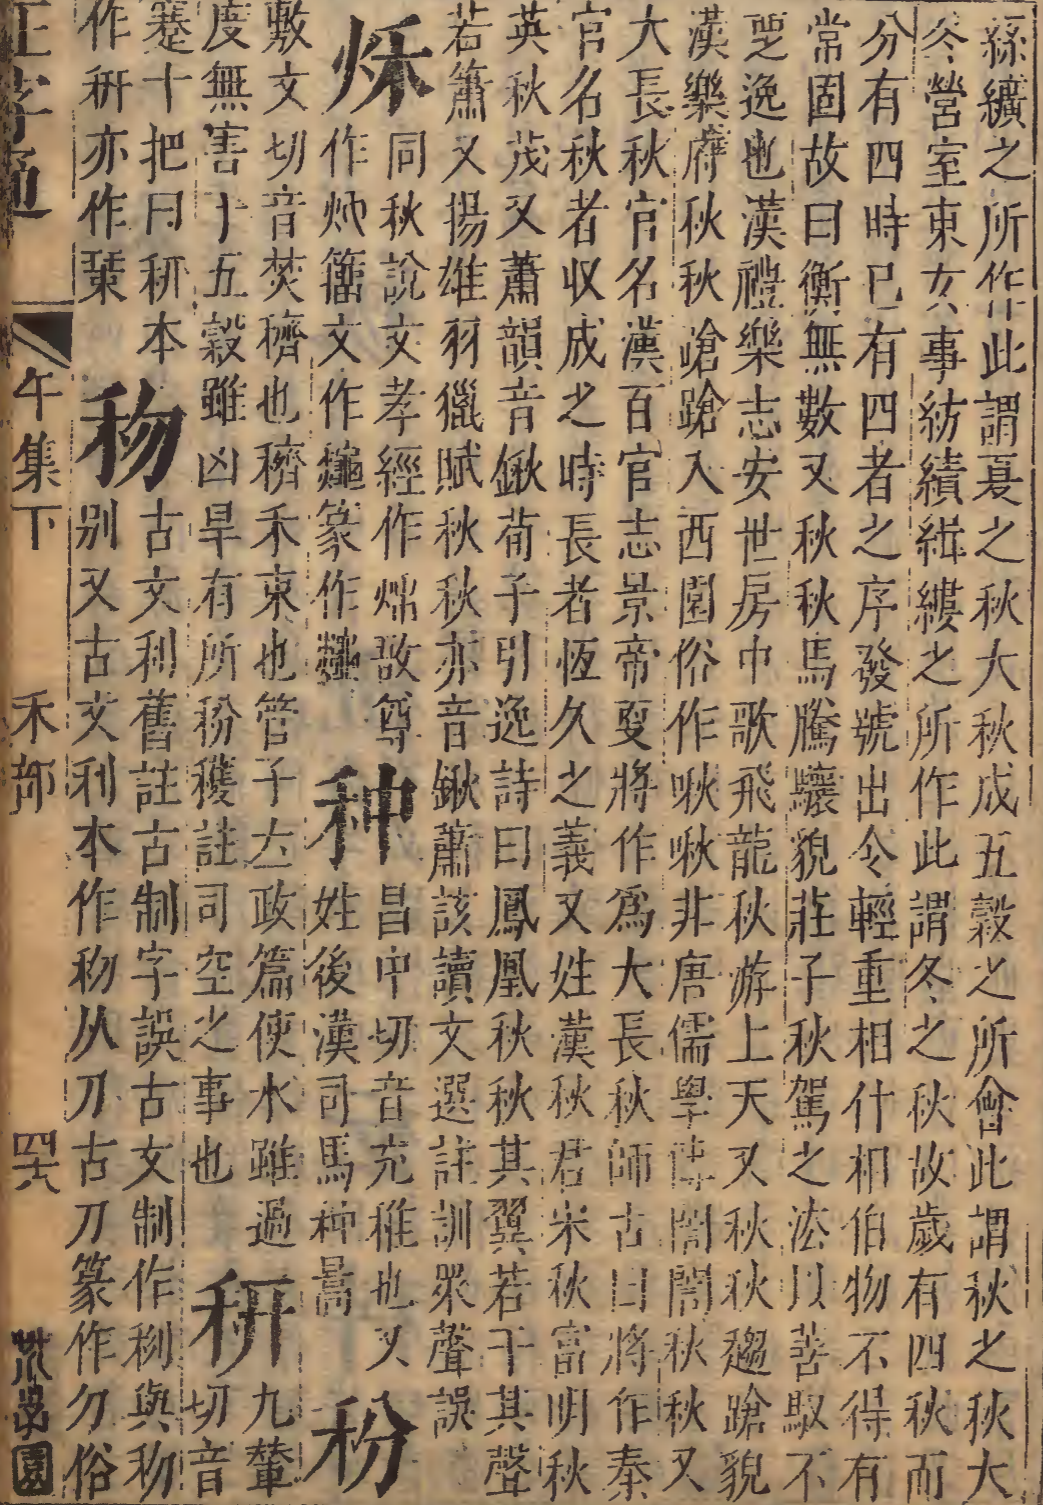 絲纊之所作此謂夏之秋大秋成五穀之所會此謂秋之秋大
冬營室東女事紡績緝縷之所作此謂冬之秋故歲有四秋而
分有四時已有四者之序發號出令輕重相什相伯物不得有
常固故曰衡無數又秋秋馬騰驤貌莊子秋駕之法以善馭不
覂逸也漢禮樂志安世房中歌飛龍秋游上天又秋秋趨蹌貌
漢樂府秋秋嗆蹌入西園俗作啾啾非唐儒學傳誾誾秋秋又
大長秋官名漢百官志景帝更將作爲大長秋師古曰將作秦
官名秋者收成之時長者恆久之義又姓漢秋君宋秋富明秋
英秋茂又蕭韻音鍬荀子引逸詩曰鳳凰秋秋其翼若干其聲
若簫又揚雄羽獵賦秋秋亦音鍬蕭該讀文選註訓衆聲誤
秌
同秋說文孝經作烌敨尊
作炢籒文作龝篆作𪛁
种
昌中切音充稚也又
姓後漢司馬种暠
秎
敷文切音焚穧也穧禾束也管子立政篇使水雖過
度無害于五穀雖凶旱有所秎穫註司空之事也
秄
九輦
切音
蹇十把曰秆本
作秆亦作琹
秎
古文利舊註古制字誤古文制作𠛐與𥝤
別又古文利本作𥝤从刀古刀篆作勿俗
正字通
午集下
禾部
四六
芥子園